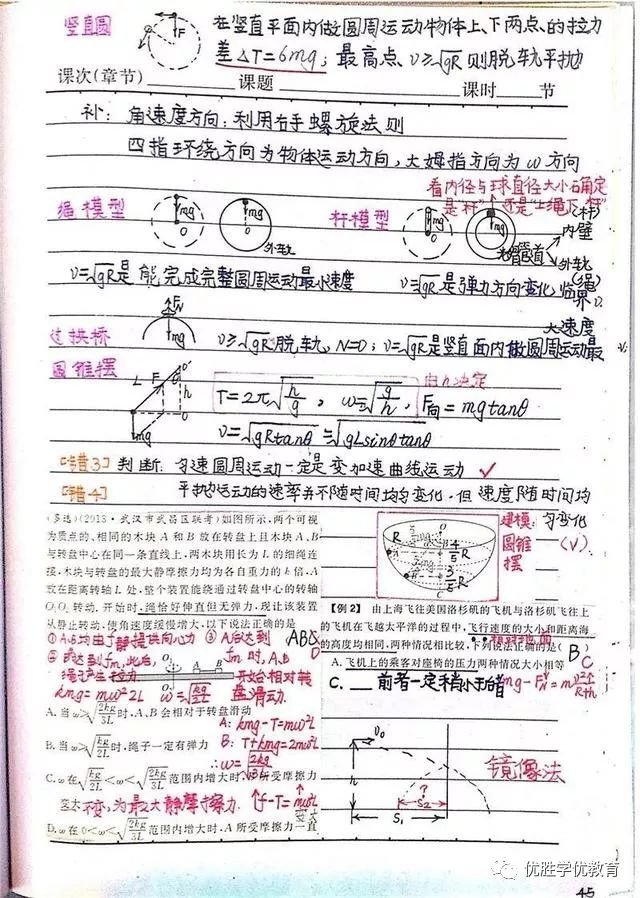 竖直圆
F
在竖直平面内做圆周运动物体上、下两点的拉力
差△T=6mg; 最高点、v≥√gR 则脱轨平抛
课次(章节)________课题________课时____节
补: 角速度方向: 利用右手螺旋法则
四指环绕方向为物体运动方向,大姆指方向为ω方向
看内径与球直径大小确定
是"杆"还是"上绳下杆"
绳模型
mg
O
mg
外轨
杆模型
mg
O
mg
光管管道
(杆)
内壁
外轨
(绳)
v=√gR是能完成完整圆周运动最小速度
v=√gR是弹力方向变化临界v
大速度
过拱桥
FN
mg
v≥√gR脱轨, N=0; v=√gR是竖直面内做圆周运动最
圆锥摆
L F θ O' h O mg
T=2π√h/g , ω=√g/h ,
由h决定
F向=mgtanθ
v=√gRtanθ=√gLsinθtanθ
[错3] 判断: 匀速圆周运动一定是变加速曲线运动 ✓
[错4] 平抛运动的速率并不随时间均匀变化,但速度随时间均
匀变化
(√)
(多选)(2013·武汉市武昌区联考)如图所示,两个可视
为质点的、相同的木块 A 和 B 放在转盘上且木块 A、B
与转盘中心在同一条直线上,两木块用长为 L 的细绳连
接,木块与转盘的最大静摩擦力均为各自重力的 k 倍,A
放在距离转轴 L 处,整个装置能绕通过转盘中心的转轴
O₁O₂ 转动.开始时,绳恰好伸直但无弹力,现让该装置
从静止转动,使角速度缓慢增大,以下说法正确的是
ABD
①A、B均由f静提供向心力
③A后达到fm时,A、B
开始相对转
盘滑动.
kmg=mω²2L ω=√kg/2L
A.当 ω>√2kg/3L 时,A、B 会相对于转盘滑动
A: kmg-T=mω²L
B.当 ω>√kg/2L 时,绳子一定有弹力
B: T+kmg=2mω²L
∴ω=√2kg/3L
C.ω 在 √kg/2L<ω<√2kg/3L 范围内增大时,B 所受摩擦力
变大
不变,为最大静摩擦力.
↑f-T=mω²L
变大
D.ω 在 0<ω<√2kg/3L 范围内增大时,A 所受摩擦力一直
R
4/5R
3/5R
R
建模:
圆锥
摆
【例2】 由上海飞往美国洛杉矶的飞机与洛杉矶飞往上
海的飞机在飞越太平洋的过程中,飞行速度的大小和距离海
面的高度均相同,两种情况相比较,下列说法正确的是( )
相对地面
B
C
A.飞机上的乘客对座椅的压力两种情况大小相等
C. 前者一定稍小于后者
v₀
h
S₂
S₁
镜像法
优胜学优教育
45